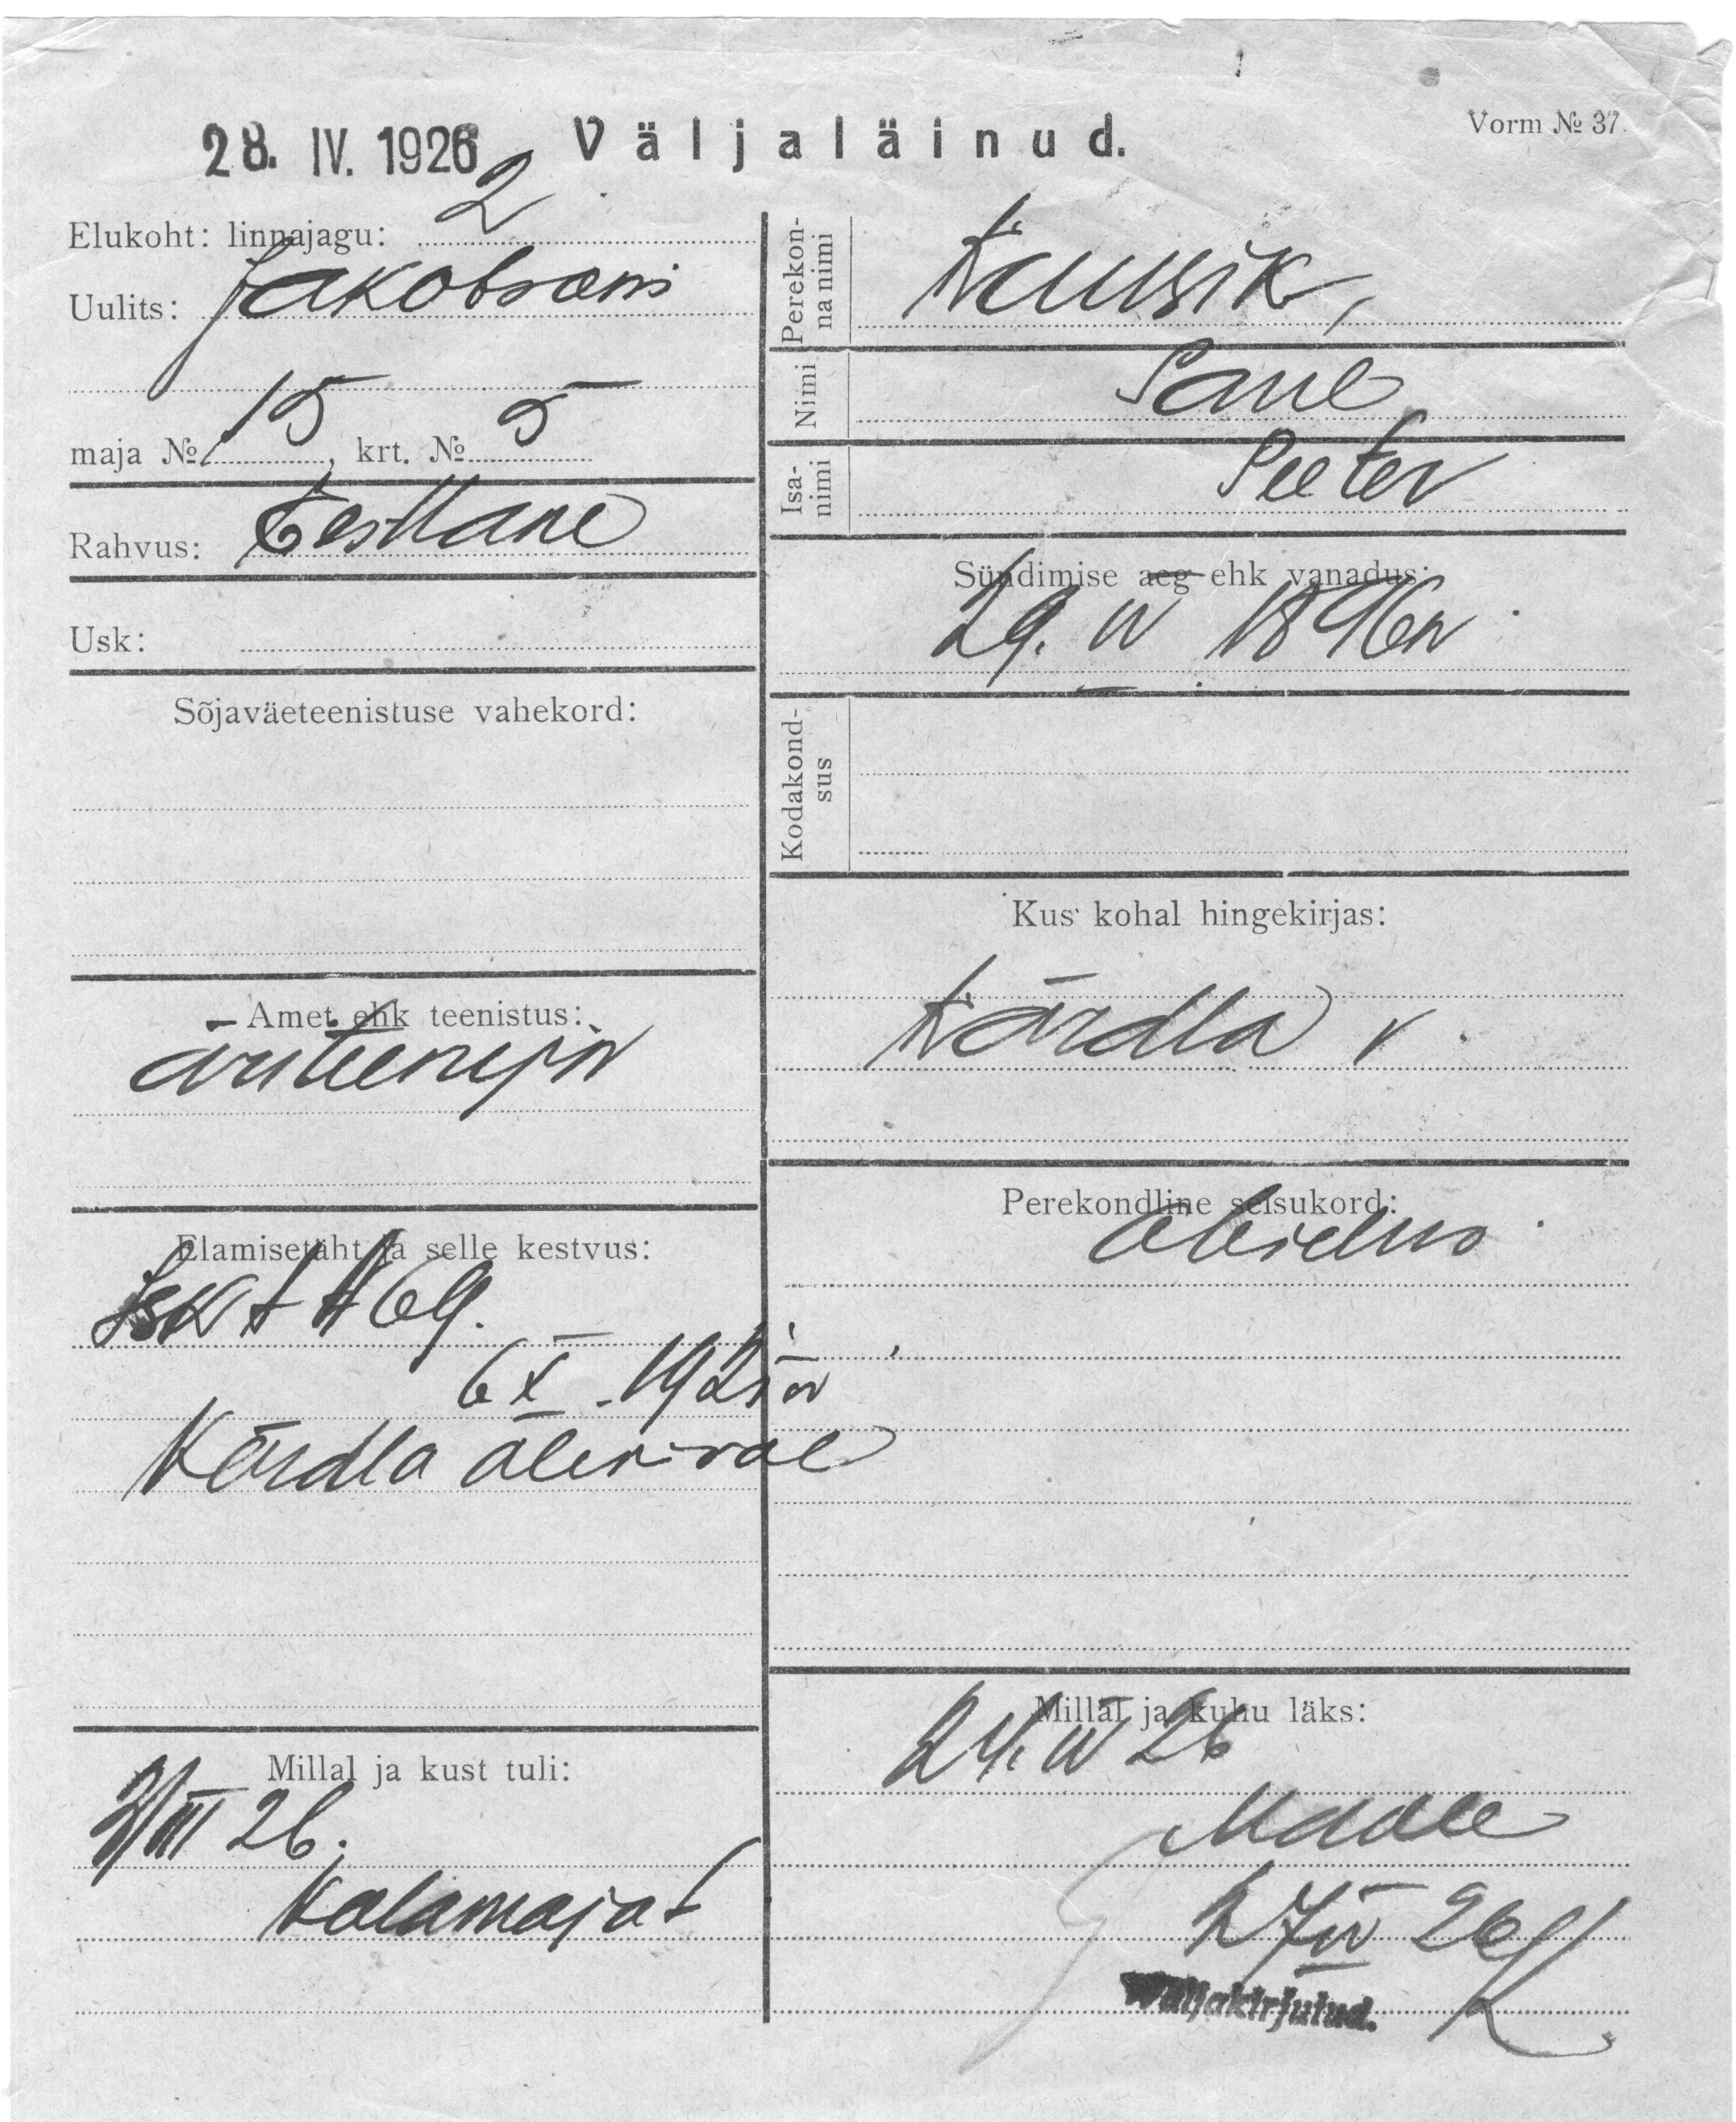 28. IV. 1926
Väljaläinud.
Vorm № 37.
Elukoht: linnajagu: 2
Uulits: Jakobsoni
maja № 15, krt. № 5
Rahvus: Eestlane
Usk:
Sõjaväeteenistuse vahekord:
Amet ehk teenistus:
äriteenija
Elamisetäht ja selle kestvus:
Isikt A 69.
6 X 1921 a
Kärdla alev. val
Millal ja kust tuli:
2/III 26.
Kalamajast
Perekonna nimi
Kaussik,
Nimi
Paul
Isanimi
Peeter
Sündimise aeg ehk vanadus:
29. IV 1896a
Kodakondsus
Kus kohal hingekirjas:
Kärdla v.
Perekondline seisukord:
abielus
Millal ja kuhu läks:
24. IV 26
Maale
27 IV 26
Väljakirjutud.